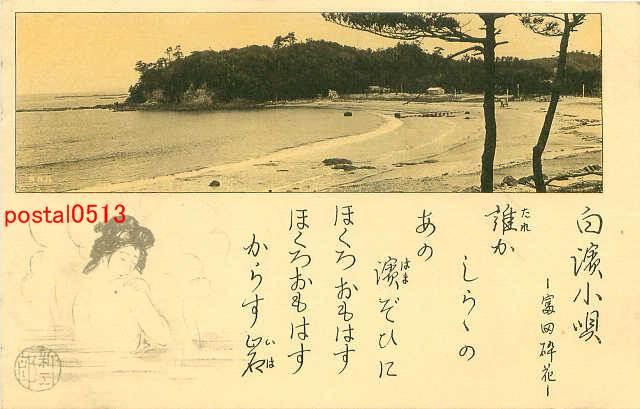 白濱小唄
―富田砕花―
誰か
たれ
しらゝの
あの
濱ぞひに
はま
ほくろおもはす
ほくろおもはす
からす岩
いは
postal0513